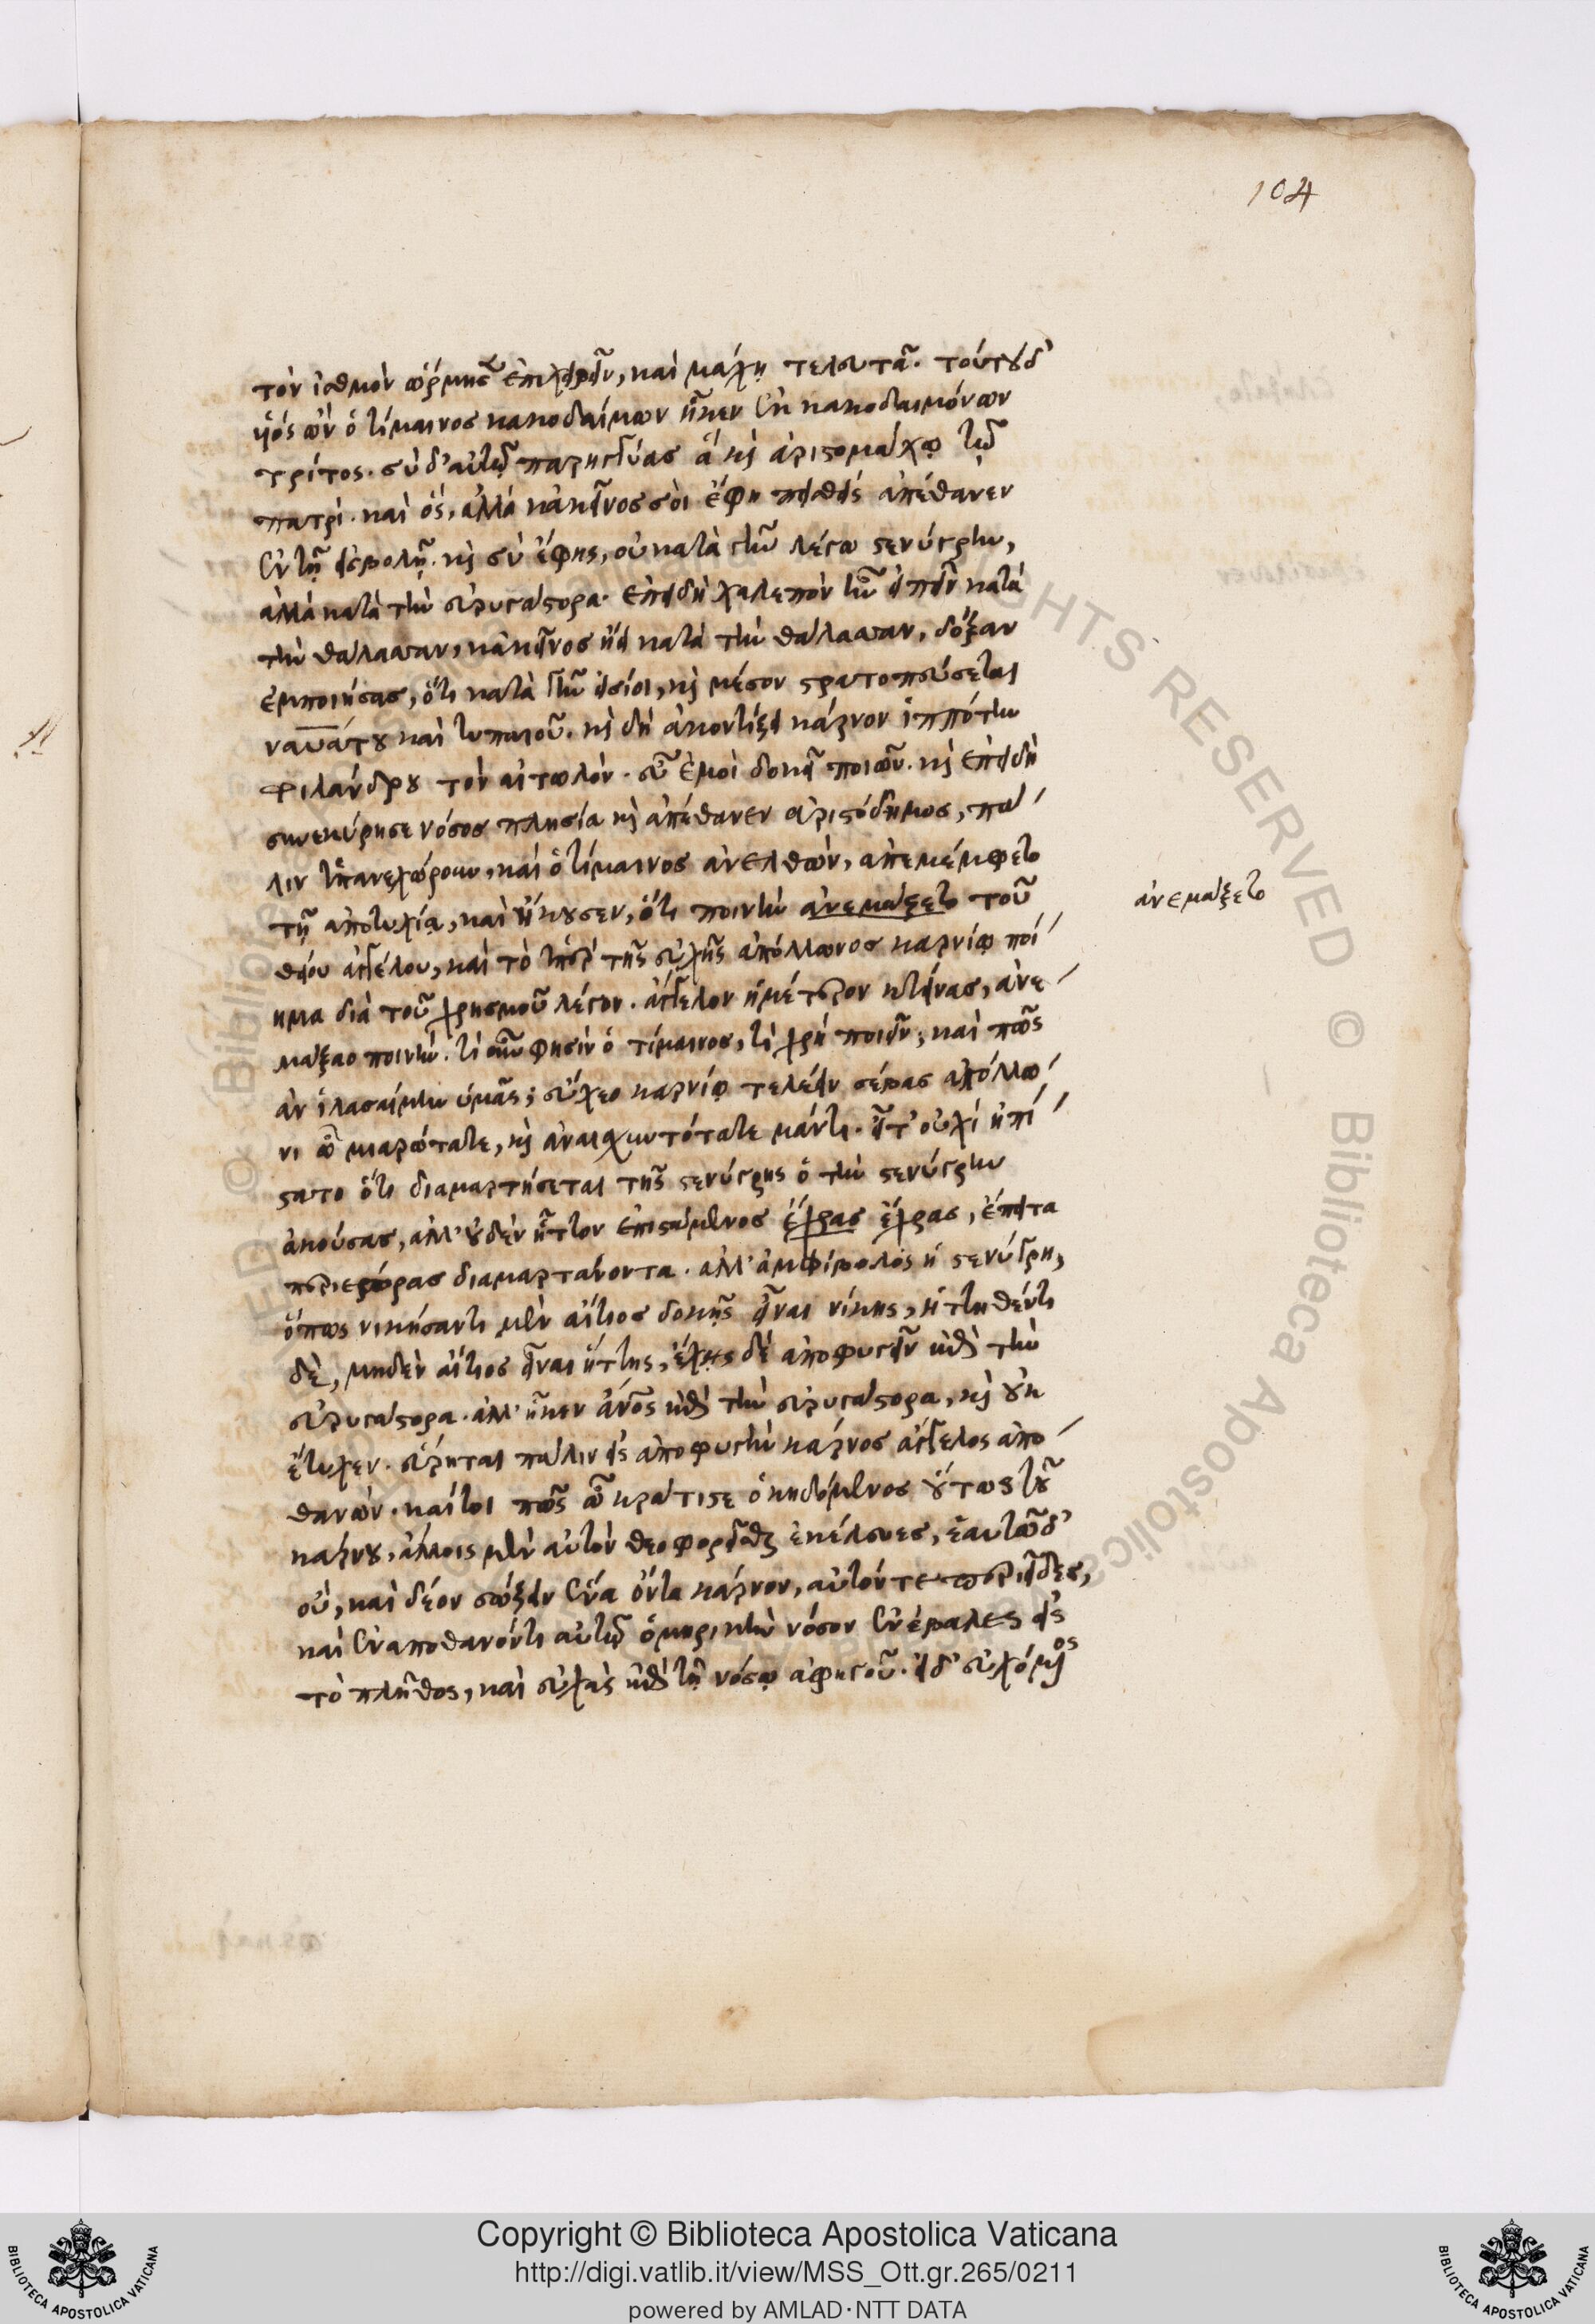 104
τὸν ἰσθμὸν ὥρμησεν ἐπιχειρεῖν, καὶ μάχῃ τελευτᾷ. τούτου δ'
υἱὸς ὢν ὁ τίμαινος κακοδαίμων ἧκεν ἐκ κακοδαιμόνων
τρίτος. σὺ δ' αὐτῷ παρηγγύας ἃ καὶ ἀριστομάχῳ τῷ
πατρί. καὶ ὅς, ἀλλὰ κἀκεῖνος σοὶ ἔφη πεισθεὶς ἀπέθανεν
ἐν τῇ εἰσβολῇ. καὶ σὺ ἔφης, οὐ κατὰ γῆν λέγω στενύγρην,
ἀλλὰ κατὰ τὴν εὐρυγάστορα. ἐπειδὴ χαλεπὸν ἦν εἰπεῖν κατὰ
τὴν θάλασσαν, κἀκεῖνος ᾔει κατὰ τὴν θάλασσαν, δόξαν
ἐμποιήσας, ὅτι κατὰ γῆν εἰσίοι, καὶ μέσον στρατοπεύσεται
ναυπάτου καὶ τυπαιοῦ. καὶ δὴ ἀκοντίζει κάρνον ἱππότην
φιλάνδρου τὸν αἰτωλόν. εὖ ἐμοὶ δοκεῖ ποιῶν. καὶ ἐπειδὴ
συνεκύρησε νόσος πλησία καὶ ἀπέθανεν ἀριστόδημος, πά
λιν ἐπανεχώρουν, καὶ ὁ τίμαινος ἀνελθών, ἀπεμέμφετο
τῇ ἀποτυχίᾳ, καὶ ἤκουσεν, ὅτι ποινὴν ἀνεμάξετο τοῦ
θείου ἀγγέλου, καὶ τὸ ὑπὲρ τῆς εὐχῆς ἀπόλλωνος καρνίῳ ποί
ημα διὰ τοῦ χρησμοῦ λέγον. ἄγγελον ἡμέτερον κτείνας, ἀνε
μάξαο ποινήν. τί οὖν φησὶν ὁ τίμαινος, τί χρὴ ποιεῖν; καὶ πῶς
ἂν ἱλασαίμην ὑμᾶς; εὔχεο καρνίῳ τελέειν σέβας ἀπόλλω
νι ὦ μιαρώτατε, καὶ ἀναισχυντότατε μάντι. εἶτ' οὐχὶ ἠπί
στατο ὅτι διαμαρτήσεται τῆς στενύγρης ὁ τὴν στενύγρην
ἀκούσας, ἀλλ' οὐδὲν ἧττον ἐπιστάμενος ἔχρας ἔχρας, ἔπειτα
περιεώρας διαμαρτάνοντα. ἀλλ' ἀμφίβολος ἡ στενύγρη,
ὅπως νικήσαντι μὲν αἴτιος δοκῇς εἶναι νίκης, ἡττηθέντι
δέ, μηδὲν αἴτιος εἶναι ἥττης, ἔχῃς δὲ ἀποφυγεῖν ἐπὶ τὴν
εὐρυγάστορα. ἀλλ' ἧκεν ἄνθρωπος ἐπὶ τὴν εὐρυγάστορα, καὶ οὐκ
ἔτυχεν. εὕρηται πάλιν εἰς ἀποφυγὴν κάρνος ἄγγελος ἀπο
θανών. καίτοι πῶς ὦ κράτιστε ὁ κηδόμενος οὕτως τοῦ
κάρνου, ἄλλοις μὲν αὐτὸν θεοφορεῖσθαι ἐκέλευες, ἑαυτῷ δ'
οὔ, καὶ δέον σώζειν ἕνα ὄντα κάρνον, αὐτόν τε περιεῖδες,
καὶ ἐν ἀποθανόντι αὐτῷ ὁμηρικὴν νόσον ἐνέβαλες εἰς
τὸ πλῆθος, καὶ εὐχὰς ἐπὶ τῇ νόσῳ ἀφηγοῦ. εἰ δ' εὐχόμενος
ἀνεμάξετο
Copyright © Biblioteca Apostolica Vaticana
http://digi.vatlib.it/view/MSS_Ott.gr.265/0211
powered by AMLAD·NTT DATA
BIBLIOTECA APOSTOLICA VATICANA
BIBLIOTECA APOSTOLICA VATICANA